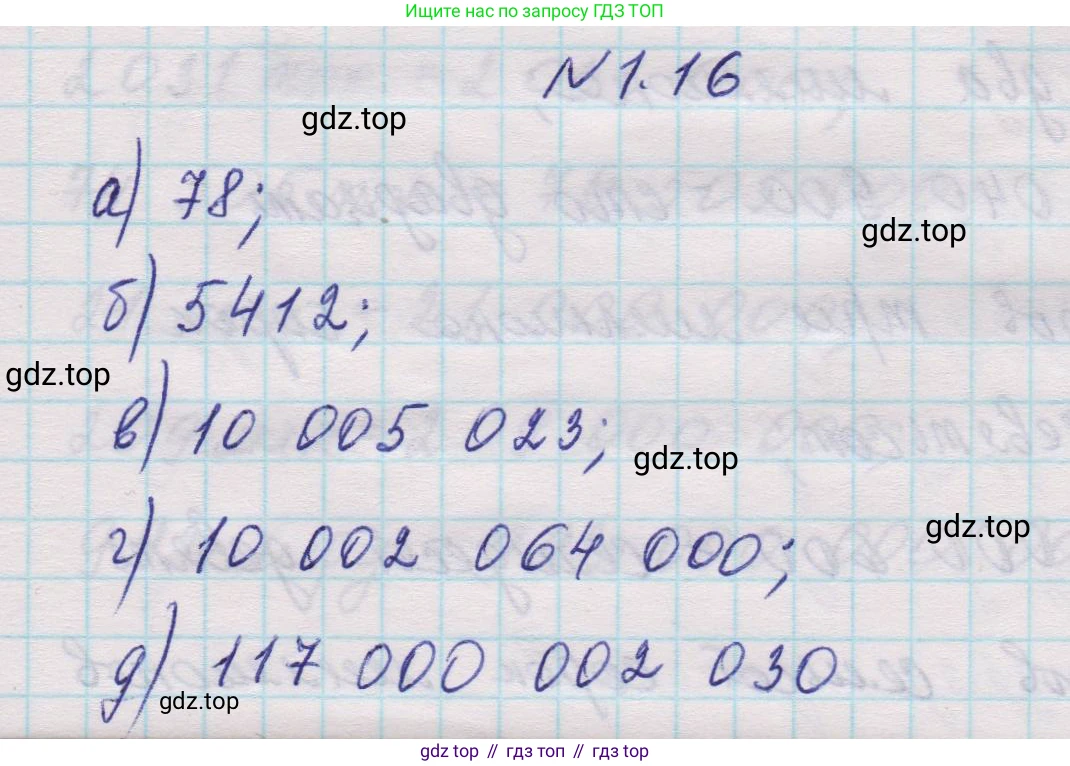 Ищите нас по запросу ГДЗ ТОП
N 1.16
gdz.top
а) 78;
gdz.top
б) 5412;
gdz.top
в) 10 005 023;
gdz.top
gdz.top
г) 10 002 064 000;
д) 117 000 002 030
gdz.top
gdz top // гдз топ // гдз top